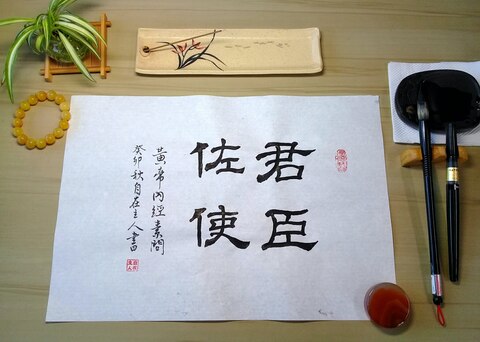 君臣
佐使
黄帝内經素問
癸卯秋自在主人書